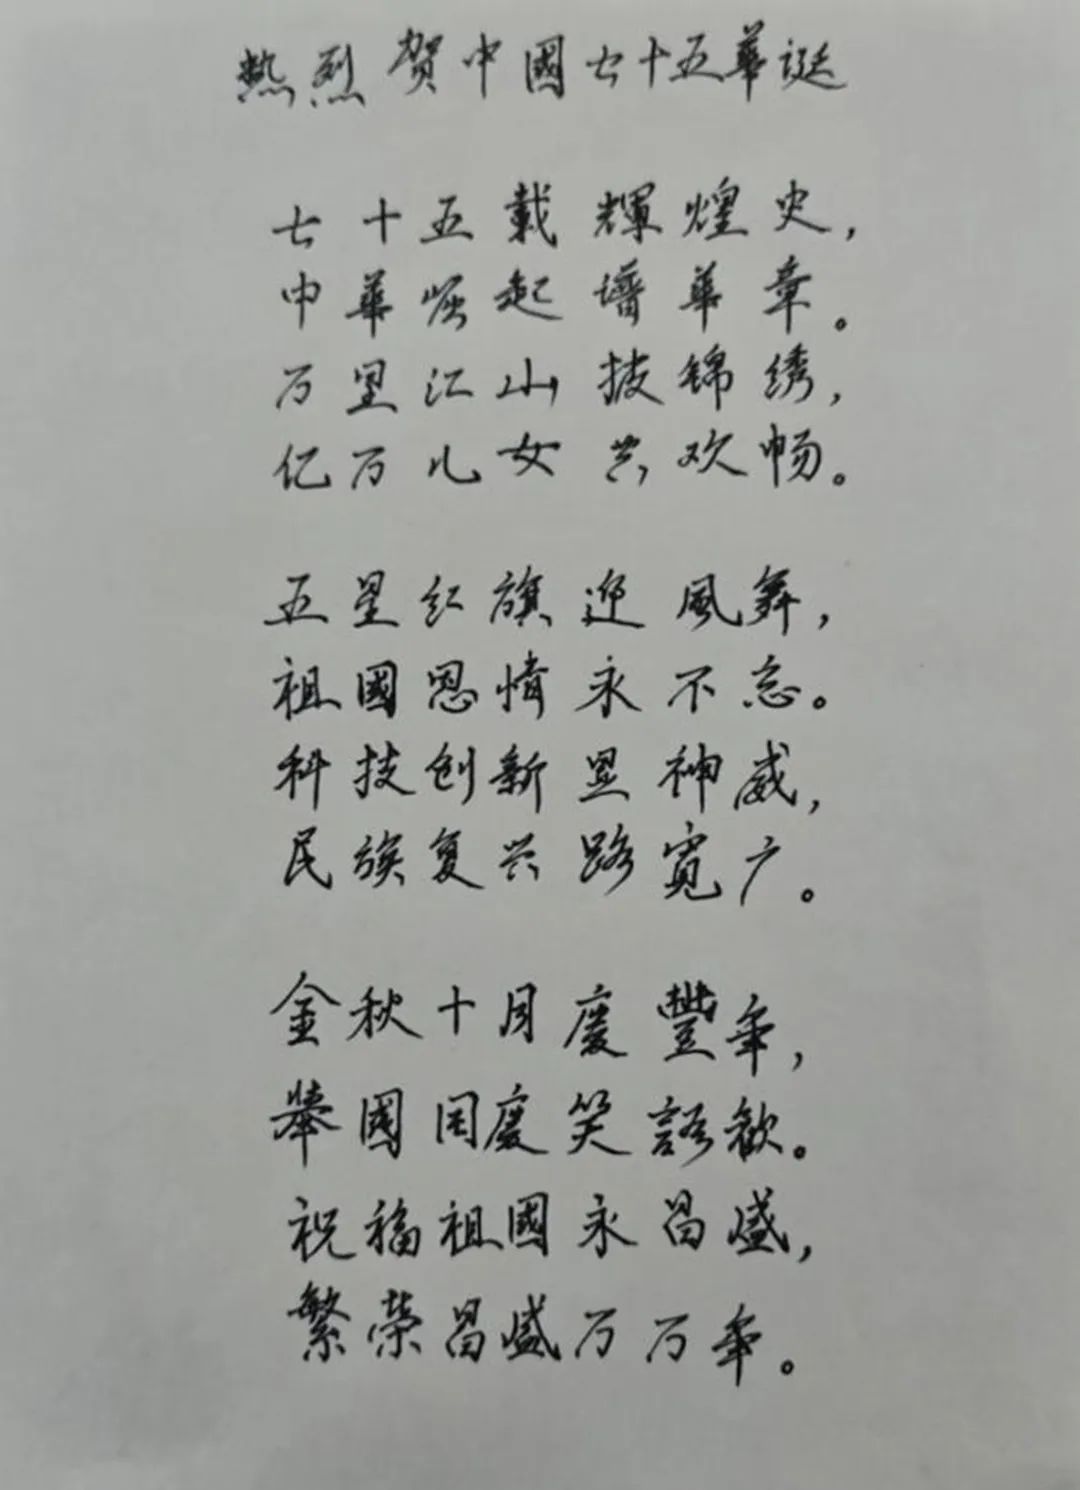 熱烈贺中國七十五華誕
七十五載輝煌史，
中華崛起譜華章。
万里江山披锦绣，
亿万儿女共欢畅。
五星红旗迎風舞，
祖國恩情永不忘。
科技创新显神威，
民族复兴路寬广。
金秋十月慶豐年，
舉國同慶笑語歡。
祝福祖國永昌盛，
繁榮昌盛万万年。